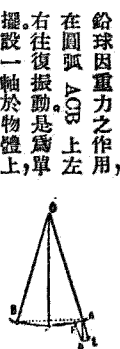 鉛球因重力之作用，
在圓弧 ACB 上左
右往復振動。是爲單
擺。設一軸於物體上，
O
B
A